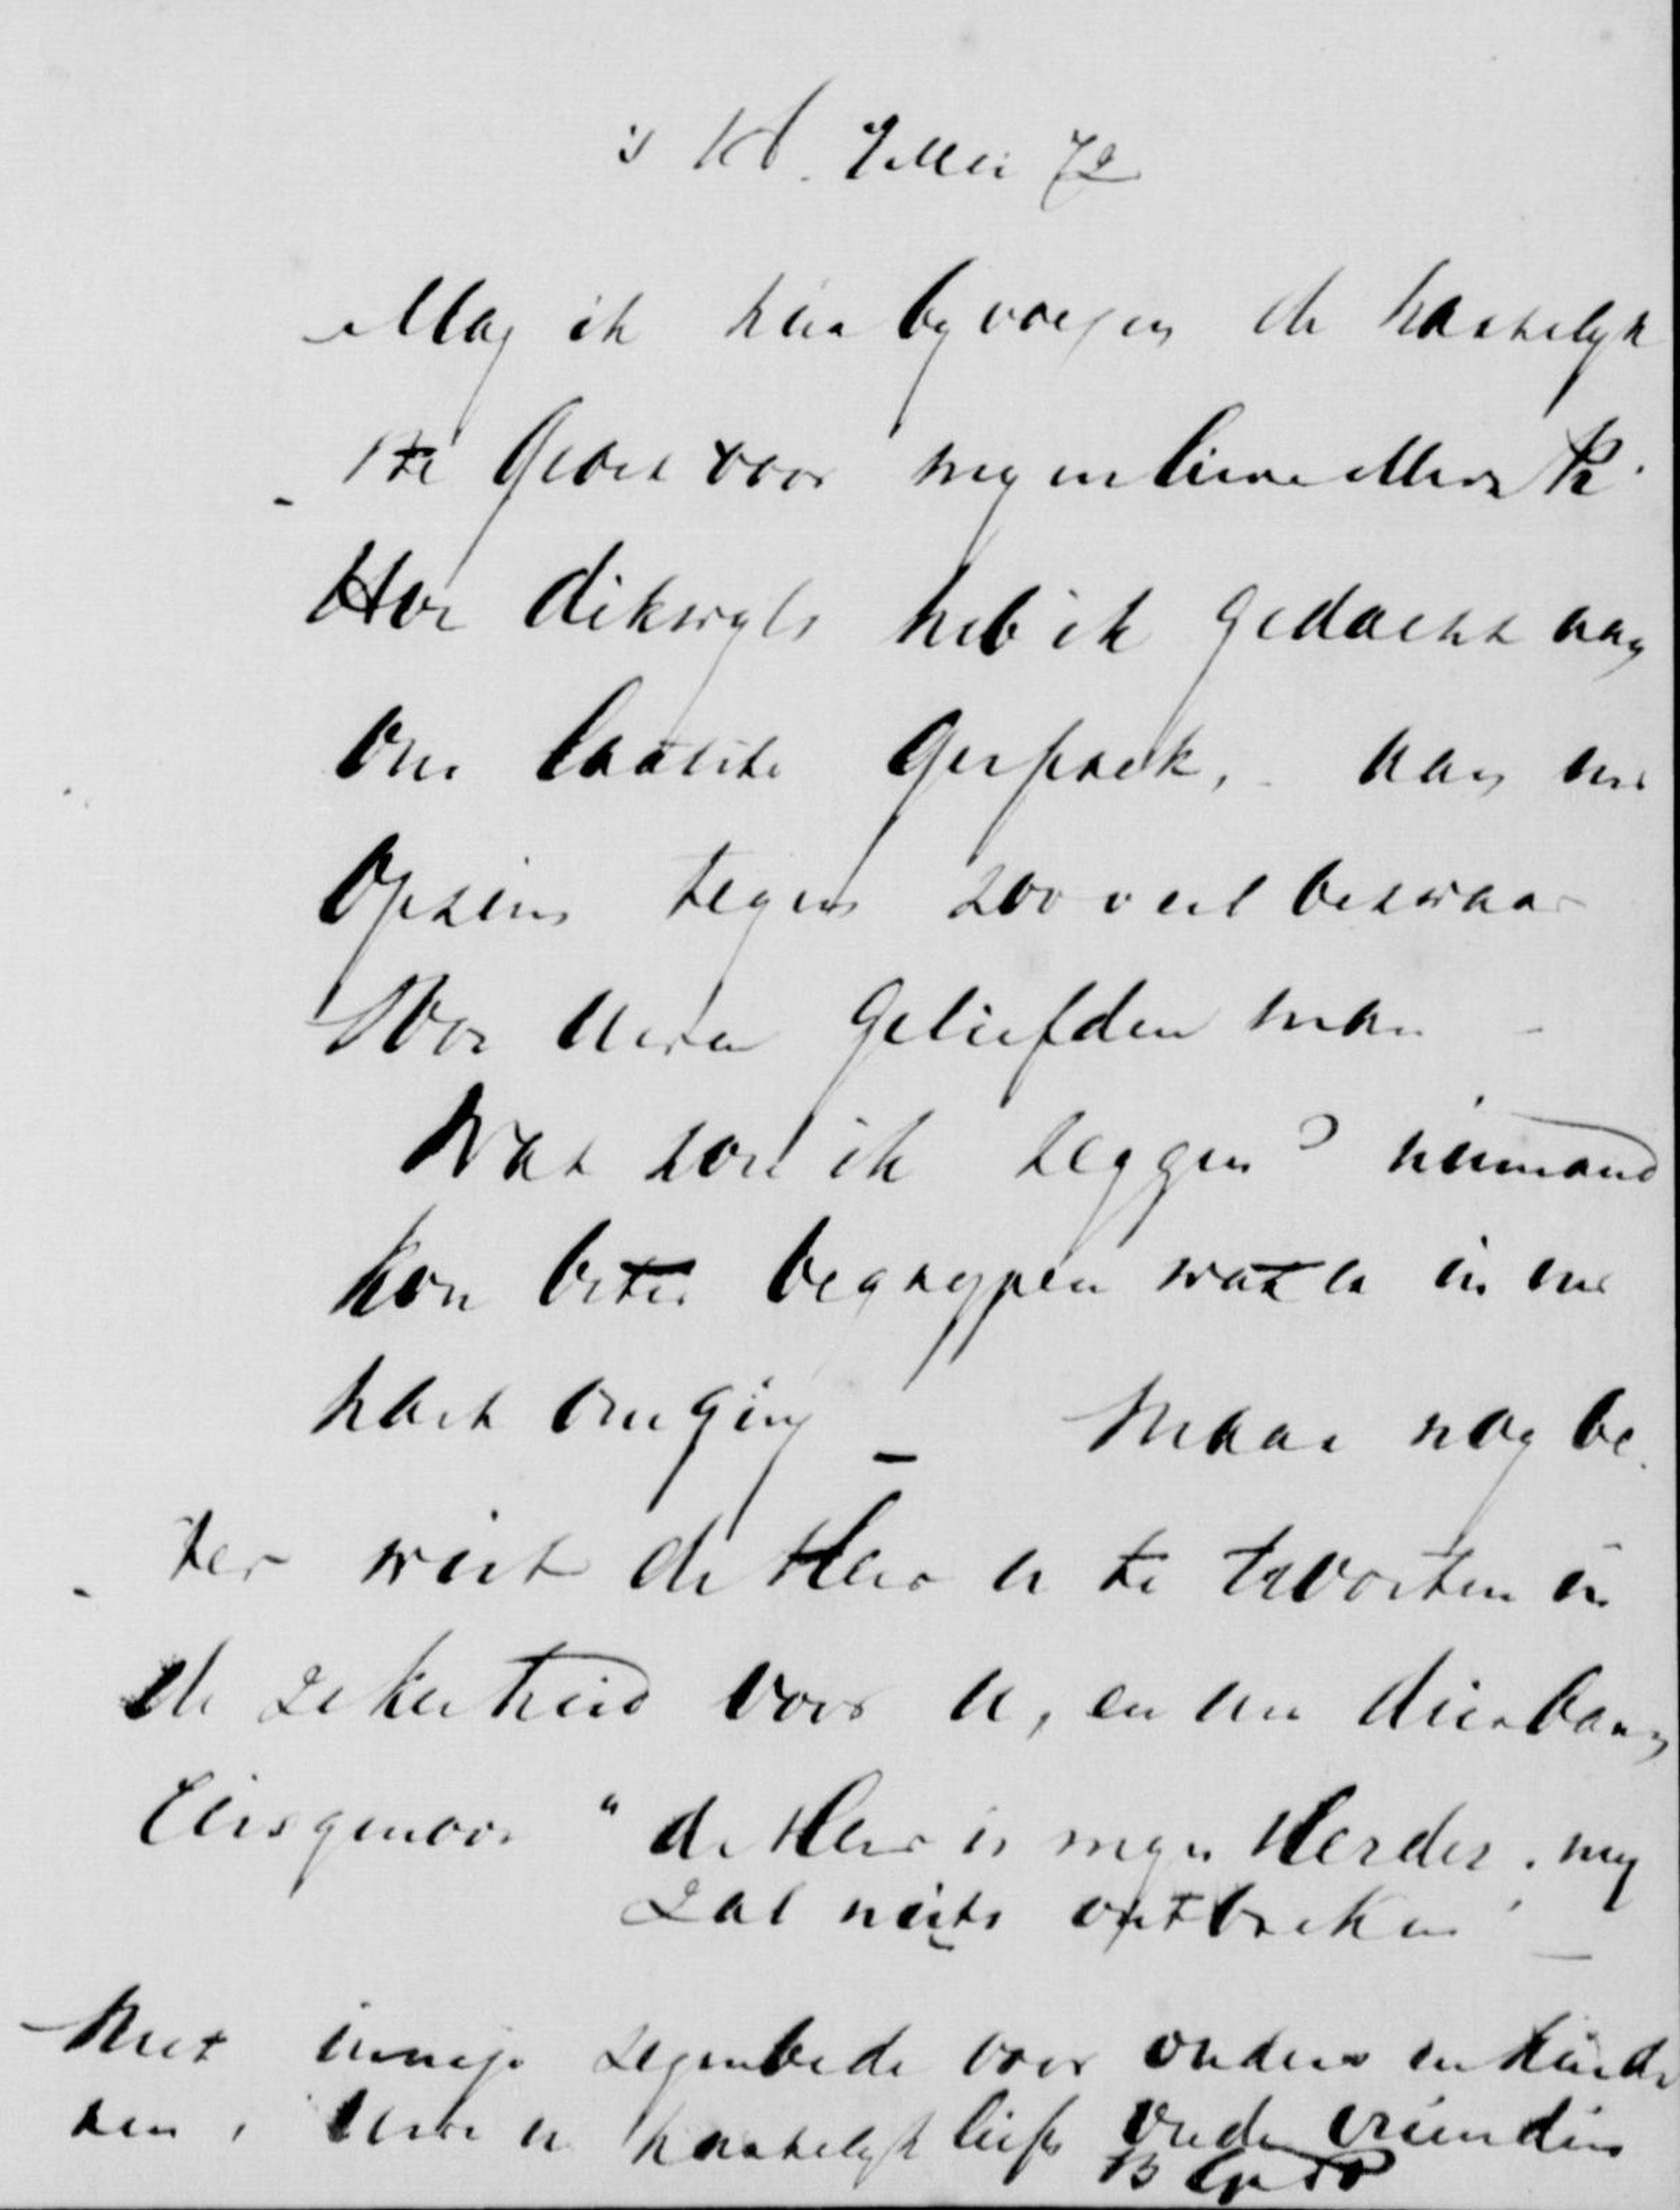 's H. 7 Mei 72
Mag ik hier by voegen de hartelyk
ste groet voor myn lieve Mevr K.
Hoe dikwyls heb ik gedacht aan
ons laatste gesprek, aan uw
opzien tegen zoo veel bezwaar
Voor Uwen geliefden man –
Wat zou ik zeggen? niemand
kon beter begrypen wat er in uw
hart omging – Maar nog be
ter wist de Heer u te troosten in
de zekerheid voor u, en uw dierbaren
Echtgenoot "de Heer is myn Herder, my
zal niets ontbreken" –
Met innige zegenbede voor ouders en kinde
ren, Uwe u hartelyk liefh oude vriendin